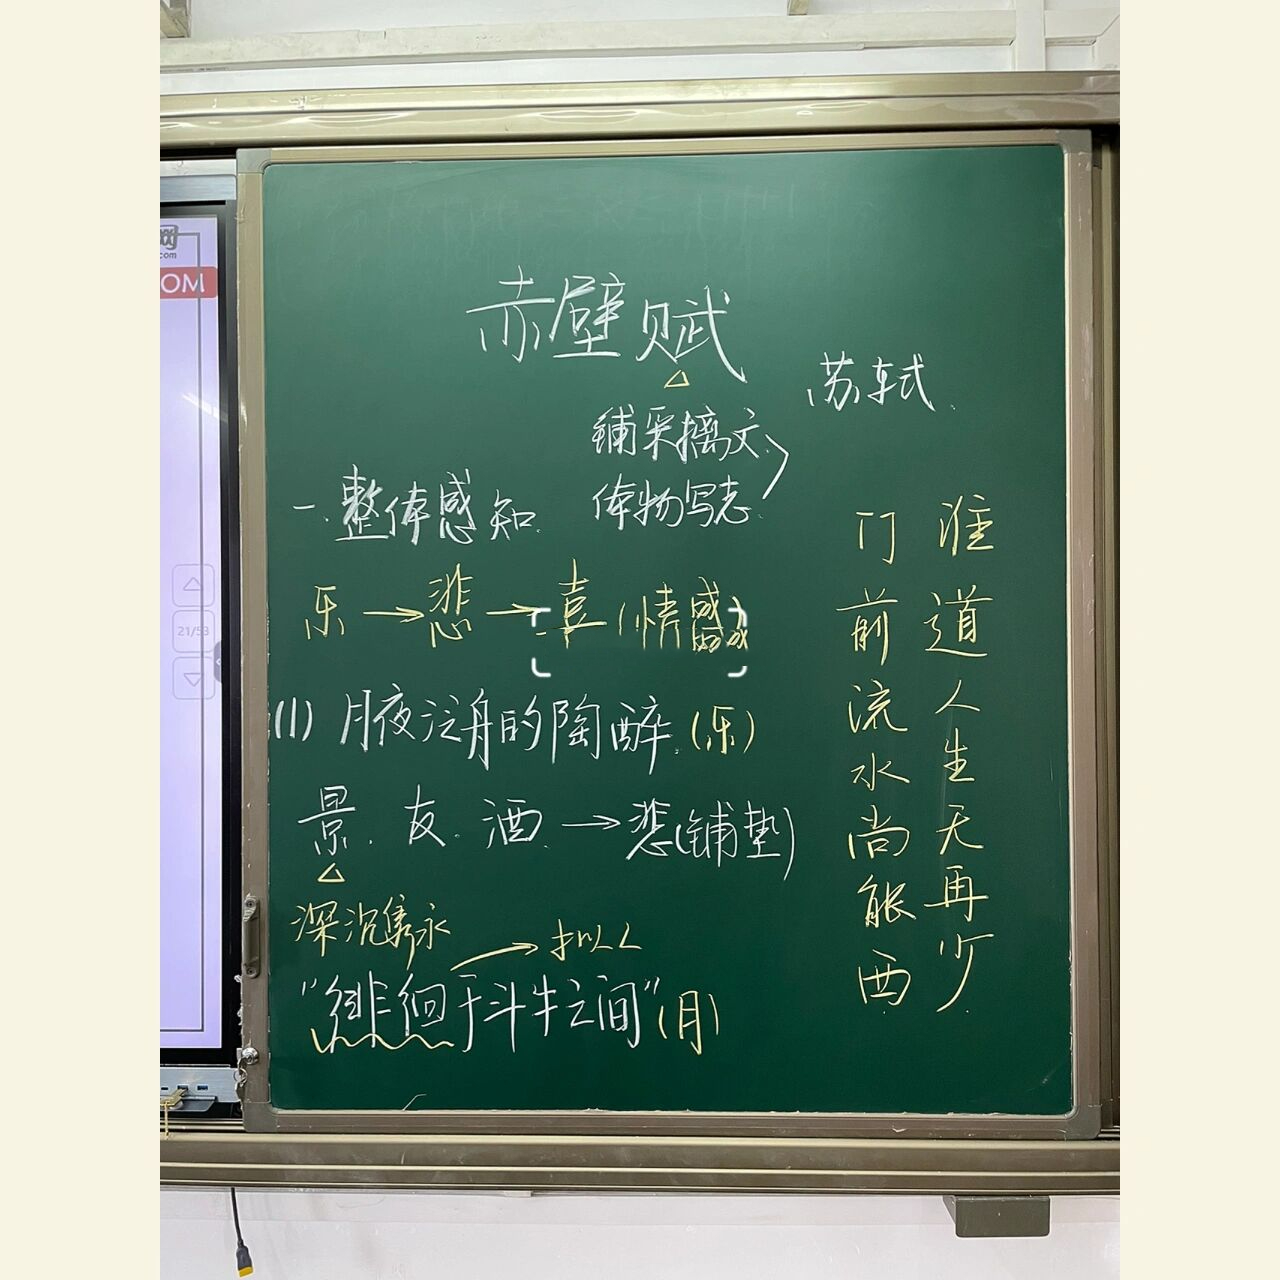 网
com
OM
21/53
赤壁赋
苏轼
铺采摛文
体物写志
一、整体感知
乐→悲→喜(情感)
(1)月夜泛舟的陶醉(乐)
景、友、酒→悲(铺垫)
深沉隽永
→拟人
"徘徊于斗牛之间"(月)
谁道人生无再少
门前流水尚能西